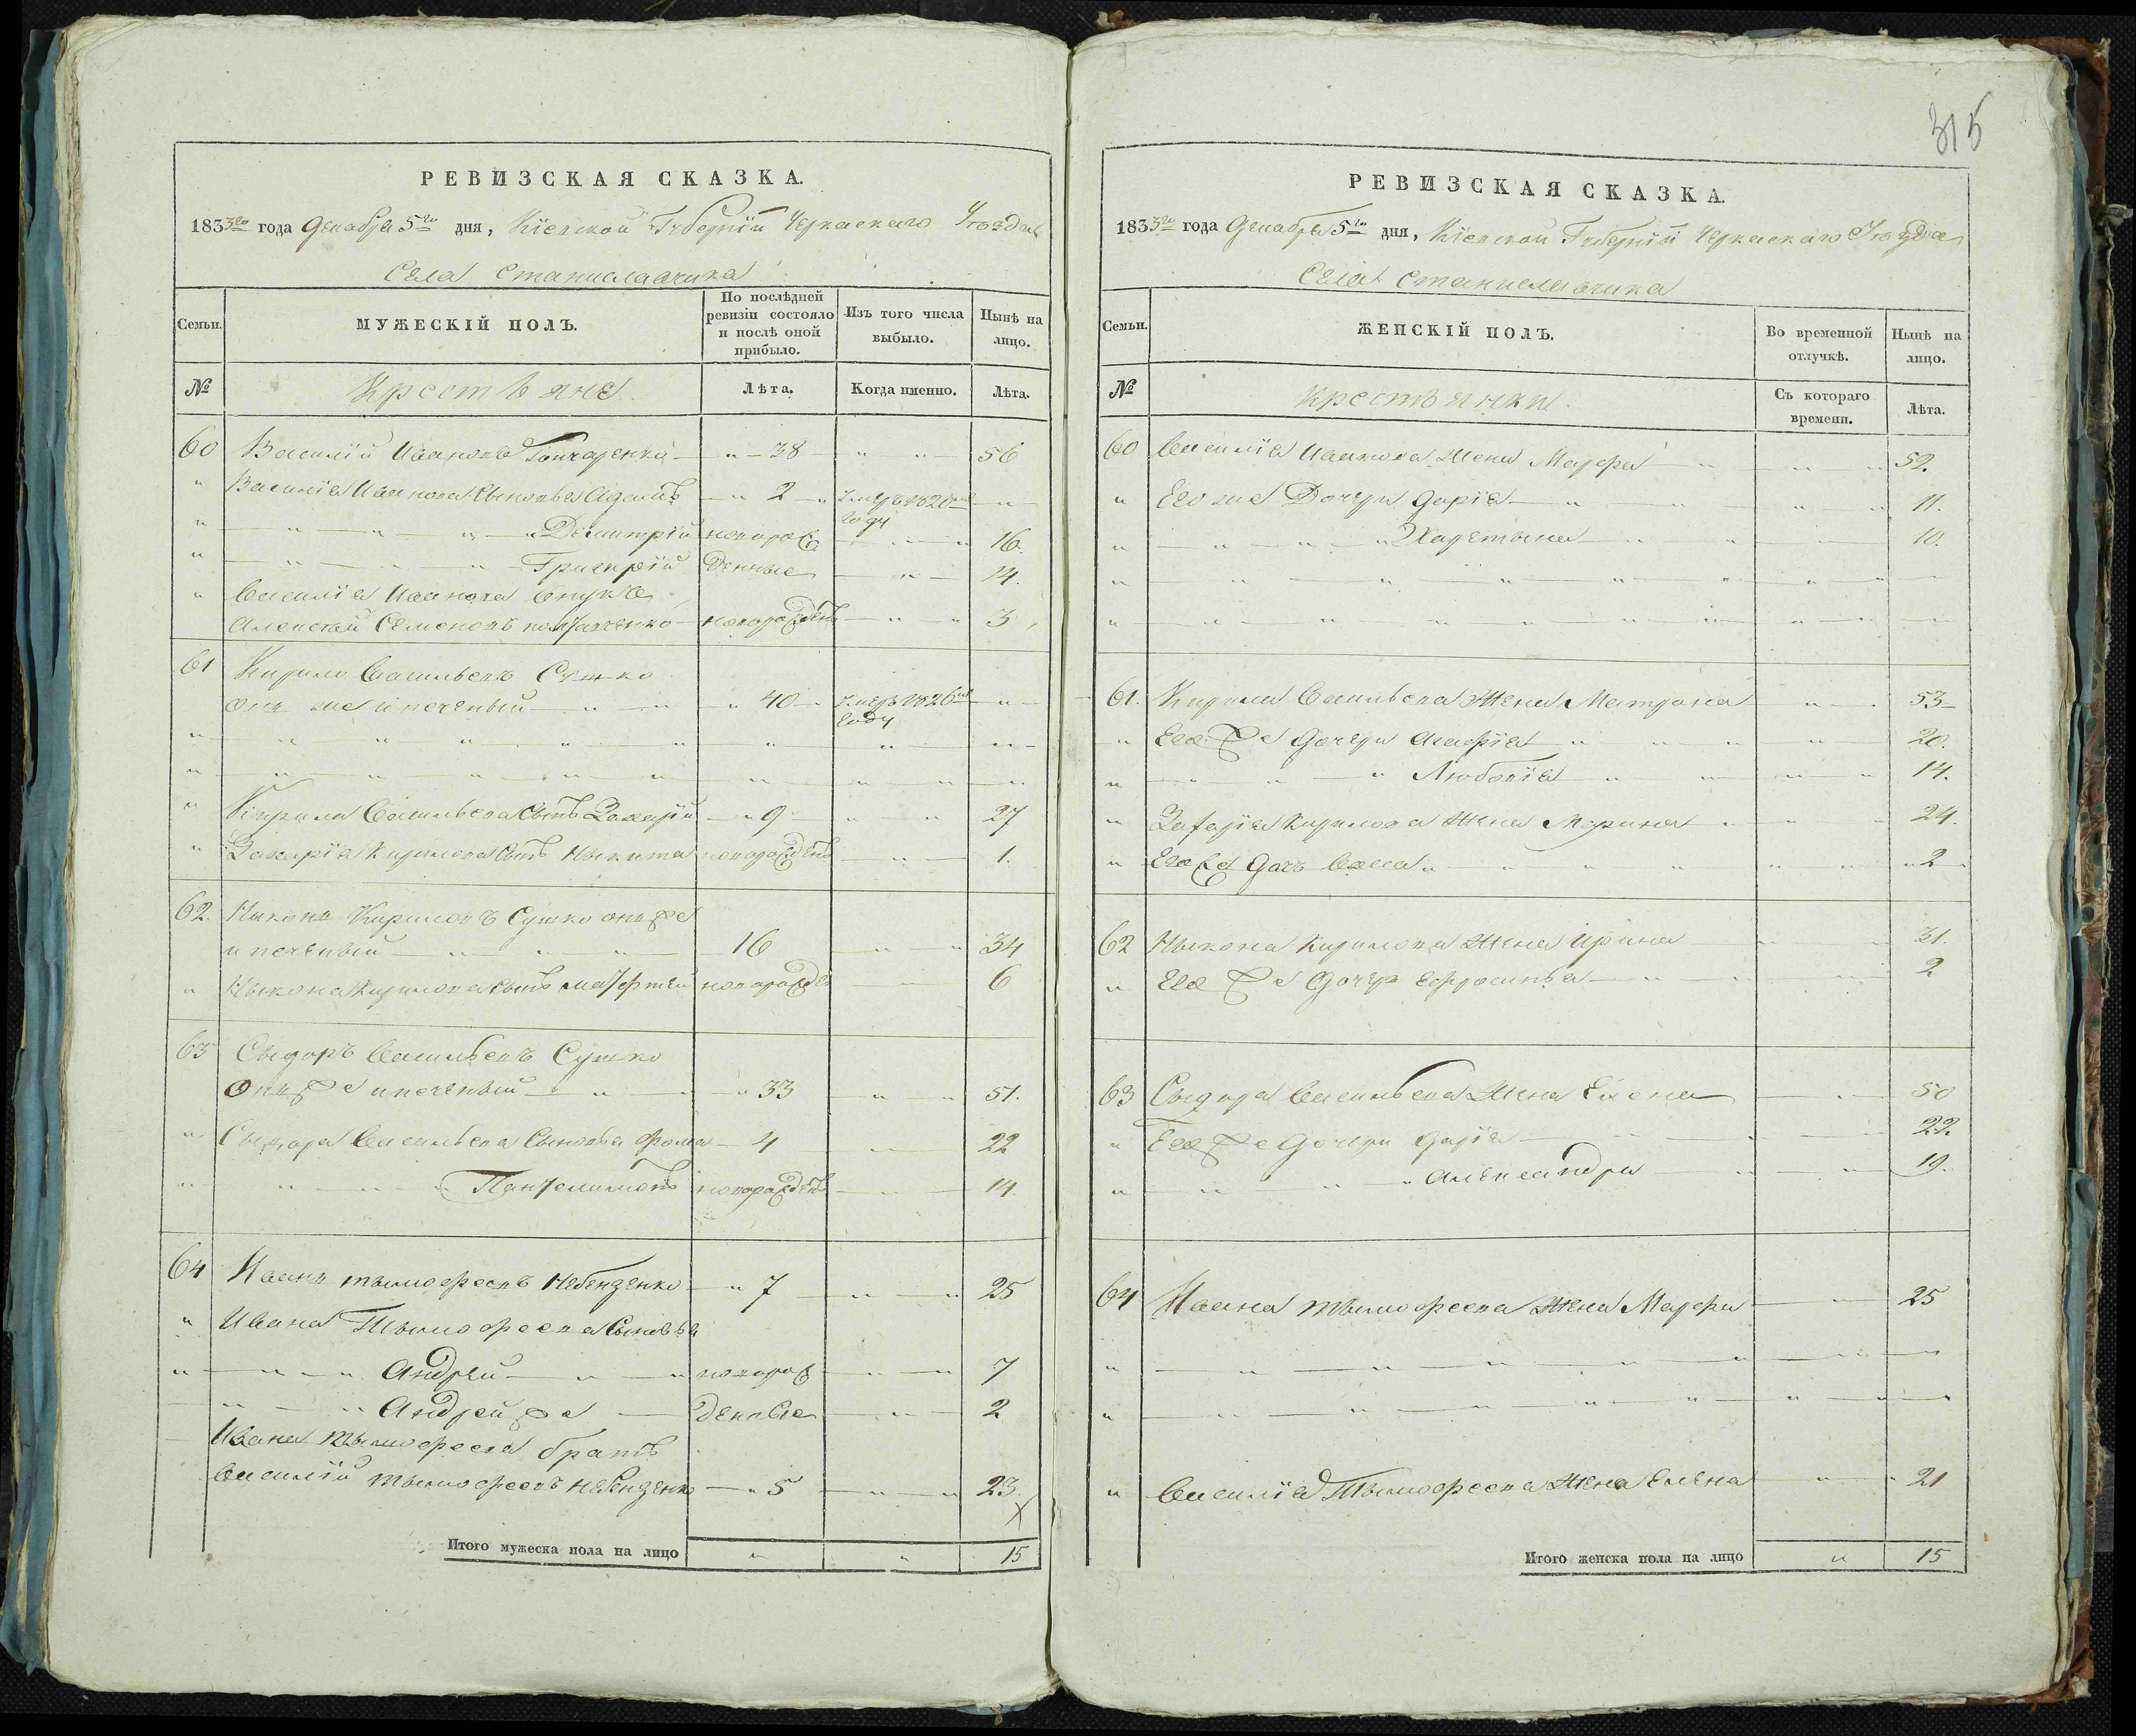 315
РЕВИЗСКАЯ СКАЗКА.
1833го года Декабря 5го дня, Кіевской Губерніи Черкаскаго Уѣзда
Села Станиславчика
Семьи. МУЖЕСКІЙ ПОЛЪ. По послѣдней ревизіи состояло и послѣ оной прибыло. Изъ того числа выбыло. Нынѣ на лицо.
№ Крестьяне Лѣта. Когда именно. Лѣта.
60 Василій Ивановъ Гончаренко 38 56
Василія Иванова сыновья Адамъ 2 умеръ 1820 году
Димитрій новорож 16
Григорій денные 14
Василія Иванова внукъ
Алексѣй Семеновъ новорожденъ 3
61 Кирило Васильевъ Сушко
онъ же и печеный 40 умеръ 1826 году
Кирила Васильева сынъ Захарій 9 27
Захарія Кирилова сынъ Ныкита новорожденъ 1
62 Ныконъ Кириловъ Сушко онъ же
и печеный 16 34
Ныкона Кирилова сынъ новорожде 6
63 Сыдоръ Васильевъ Сушко
Онъ же и печеный 33 51
Сыдора Васильева сыновья Фома 4 22
Пантелимонъ новорожденъ 14
64 Иванъ Тымофеевъ Небензенко 7 25
Ивана Тымофеева сыновья
Андрей новорож 7
Андрей же денные 2
Ивана Тымофеева братъ
Василій Тымофеевъ Небензенко 5 23
Итого мужеска пола на лицо 15
РЕВИЗСКАЯ СКАЗКА.
1833го года Декабря 5го дня, Кіевской Губерніи Черкаскаго Уѣзда
Села Станиславчика
Семьи. ЖЕНСКІЙ ПОЛЪ. Во временной отлучкѣ. Нынѣ на лицо.
№ Крестьянки Съ котораго времени. Лѣта.
60 Василія Иванова жена Марфа 52
Его же дочери Дарія 11
Харетына 10
61 Кирила Васильева жена Матрона 53
Его же дочери Агафія 20
Любовія 14
Захарія Кирилова жена Марина 24
Его же дочь 2
62 Ныкона Кирилова жена Ирина 31
Его же дочерь Ефросинья 2
63 Сыдора Васильева жена Елена 50
Его же дочери Дарія 22
Александра 19
64 Ивана Тымофеева жена Марфа 25
Василія Тымофеева жена Елена 21
Итого женска пола на лицо 15